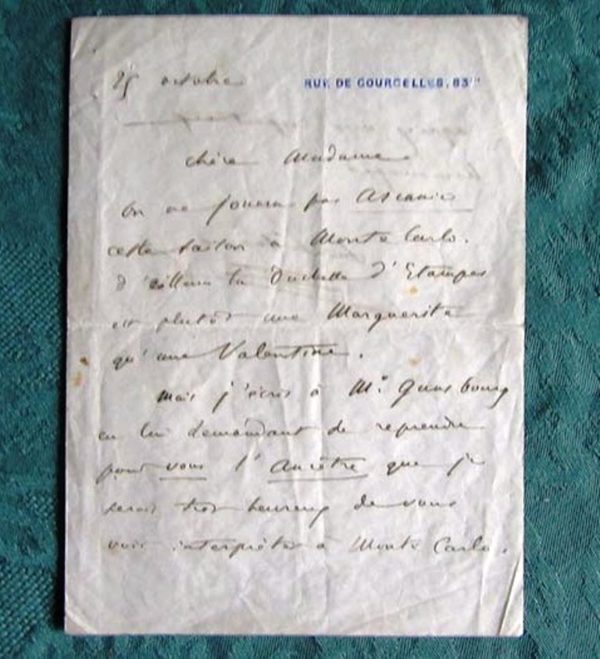 25 octobre RUE DE COURCELLES, 83bis
Chère Madame
On ne jouera pas Ascanio
cette saison à Monte Carlo.
d'ailleurs la Duchesse d'Etampes
est plutôt une Marguerite
qu'une Valentine.
Mais j'écris à Mr. Gunsbourg
en lui demandant de reprendre
pour vous l'Ancêtre que je
serais très heureux de vous
voir interpréter à Monte Carlo.